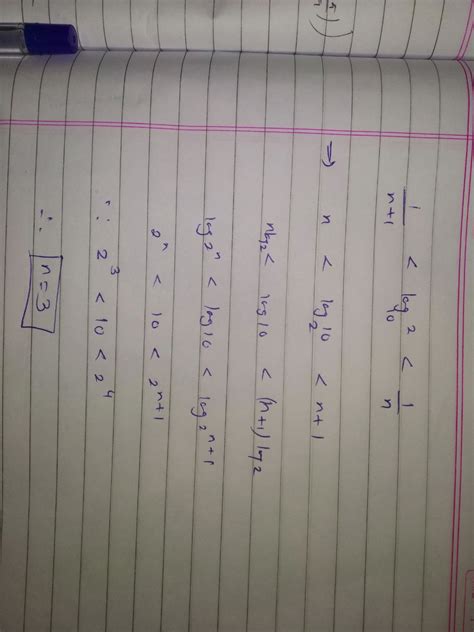 1/(n+1) < log₁₀ 2 < 1/n
→ n < log₂ 10 < n+1
nlog2 < log10 < (n+1) log2
log2ⁿ < log10 < log2ⁿ⁺¹
2ⁿ < 10 < 2ⁿ⁺¹
∵ 2³ < 10 < 2⁴
∴ n=3